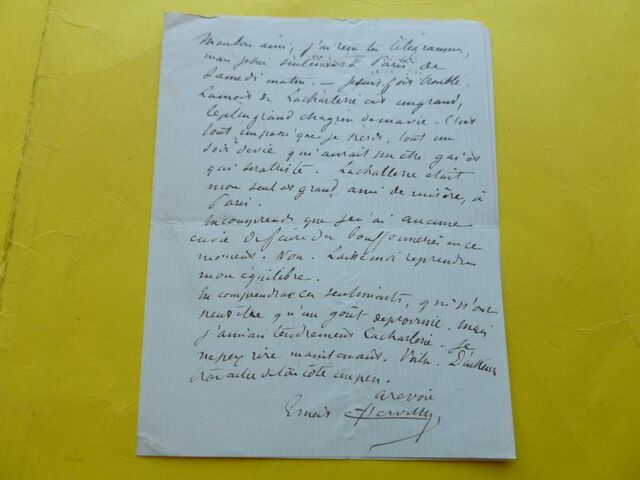 Mon bon ami, j'ai reçu tes télégrammes,
mais je suis seulement à Paris de
Samedi matin. — Je suis fort troublé.
La mort de Lacharlerie est un grand,
le plus grand chagrin de ma vie. C'est
tout un passé que je perds, tout un
soir de vie qui aurait pu être gai et
qui sera triste. Lacharlerie était
mon seul et grand ami de misère, à
Paris.
Tu comprends que je n'ai aucune
envie de faire des bouffonneries en ce
moment. Non. Laisse moi reprendre
mon équilibre.
Tu comprendras ces sentiments, qui n'ont
peut-être qu'un goût de province. Mais
j'aimais tendrement Lacharlerie. Je
ne peux rire maintenant. Voilà. D'ailleurs
de ton côté un peu.
a revoir
Ernest d'Hervilly